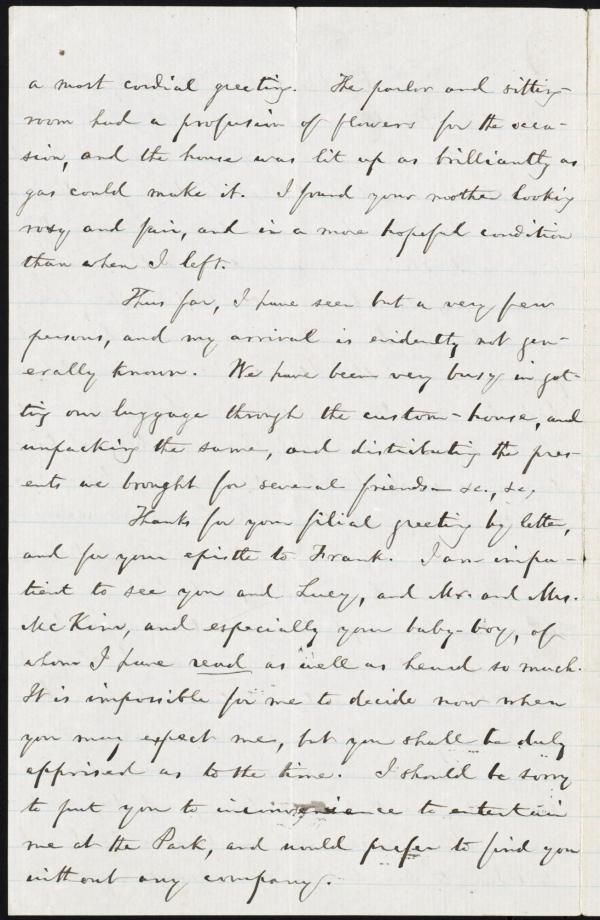 a most cordial greeting. The parlor and sitting-
room had a profusion of flowers for the occa-
sion, and the house was lit up as brilliantly as
gas could make it. I found your mother looking
rosy and fair, and in a more hopeful condition
than when I left.
Thus far, I have seen but a very few
persons, and my arrival is evidently not gen-
erally known. We have been very busy in get-
ting our luggage through the custom-house, and
unpacking the same, and distributing the pres-
ents we brought for several friends &c., &c.
Thanks for your filial greeting by letter,
and for your epistle to Frank. I am impa-
tient to see you and Lucy, and Mr. and Mrs.
McKim, and especially your baby-boy, of
whom I have read as well as heard so much.
It is impossible for me to decide now when
you may expect me, but you shall be duly
apprised as to the time. I should be sorry
to put you to inconvenience to entertain
me at the Park, and would prefer to find you
without any company.